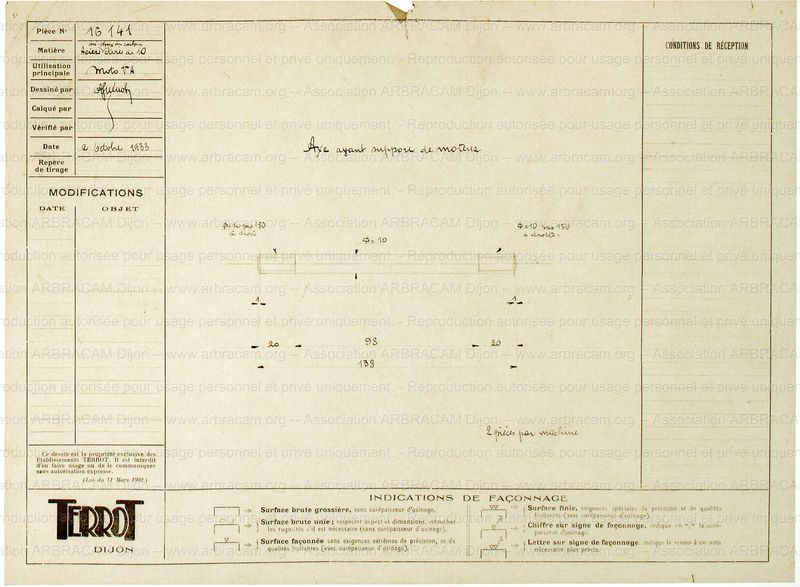 Pièce N° 16 141
Matière Acier étiré de 10
Utilisation principale Moto VA
Dessiné par
Calqué par
Vérifié par
Date 2 Octobre 1933
Repère de tirage
MODIFICATIONS
DATE OBJET
CONDITIONS DE RÉCEPTION
Axe avant support de moteur
Φ=10 pas 150
à droite
Φ=10
Φ=10 pas 150
à droite
1
1
20
98
20
138
2 pièces par machine
Ce dessin est la propriété exclusive des
Etablissements TERROT. Il est interdit
d'en faire usage ou de le communiquer
sans autorisation expresse.
(Loi du 11 Mars 1902)
TERROT
DIJON
INDICATIONS DE FAÇONNAGE
Surface brute grossière, sans surépaisseur d'usinage.
Surface brute unie; respecter aspect et dimensions, retoucher
les rugosités s'il est nécessaire (sans surépaisseur d'usinage).
Surface façonnée sans exigences extrêmes de précision, ni de
qualités frottantes (avec surépaisseur d'usinage).
Surface finie, exigences spéciales de précision et de qualités
frottantes (avec surépaisseur d'usinage).
Chiffre sur signe de façonnage, indique en la surépaisseur d'usinage.
Lettre sur signe de façonnage, indique le renvoi à un note
nécessaire plus précis.
Association ARBRACAM Dijon – www.arbracam.org
Reproduction autorisée pour usage personnel et privé uniquement.